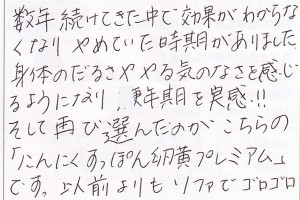 数年続けてきた中で効果がわからな
くなり やめていた時期がありました
身体のだるさや やる気のなさを感じ
るようになり、更年期を実感!!
そして再び選んだのが こちらの
「にんにくすっぽん幼黄プレミアム」
です。以前よりも ソファでゴロゴロ